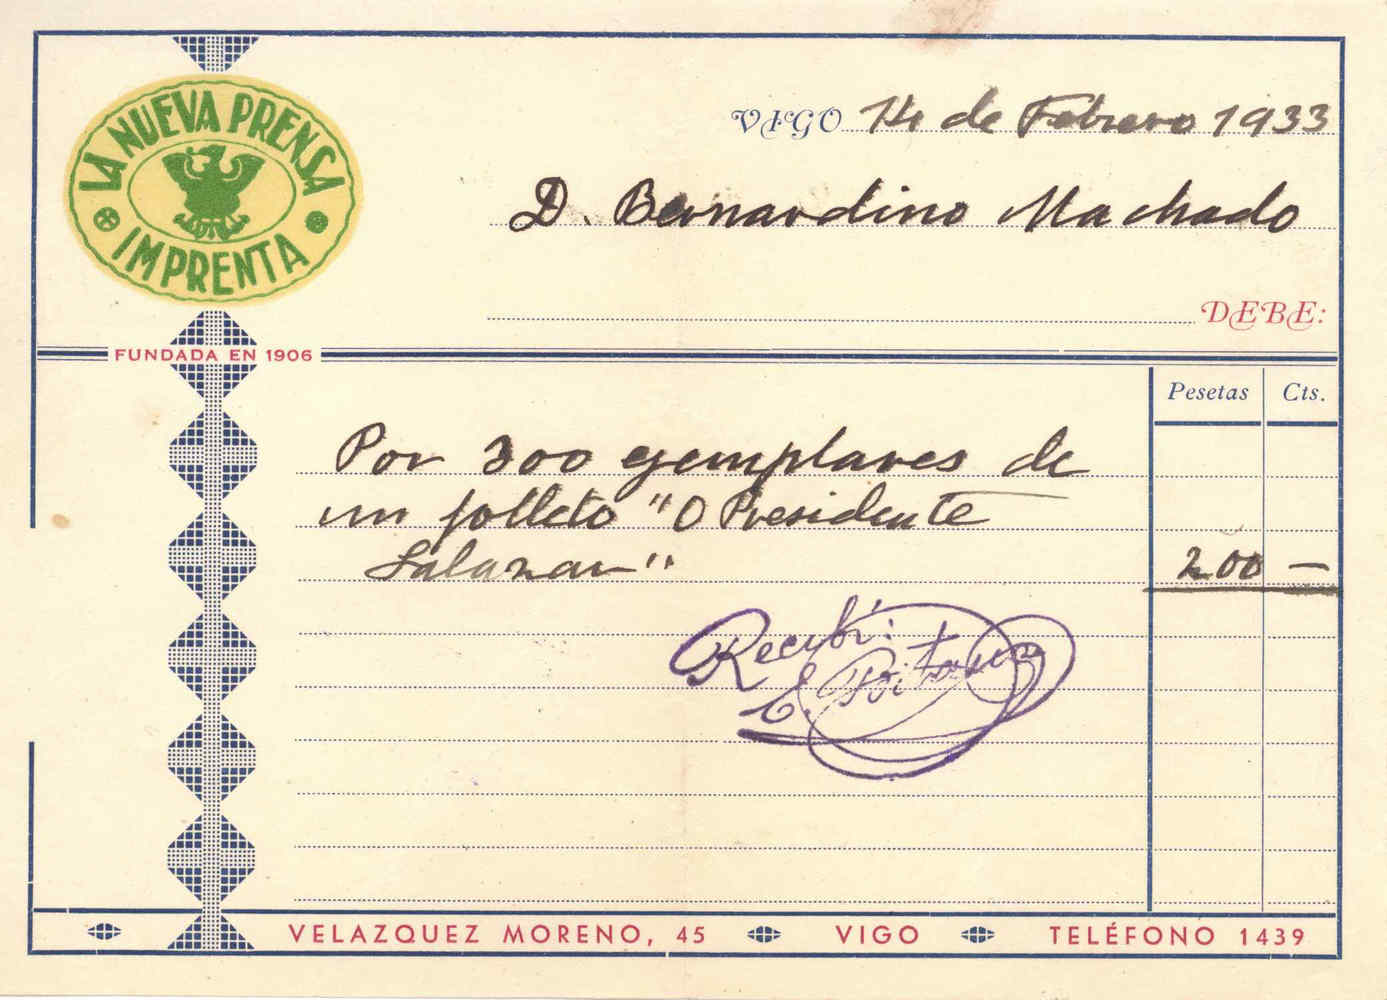 LA NUEVA PRENSA
IMPRENTA
VIGO 14 de Febrero 1933
D. Bernardino Machado
DEBE:
FUNDADA EN 1906
Pesetas Cts.
Por 300 ejemplares de
un folleto "O Presidente
Salazar" 200 —
Recibí:
E.
VELAZQUEZ MORENO, 45 VIGO TELÉFONO 1439